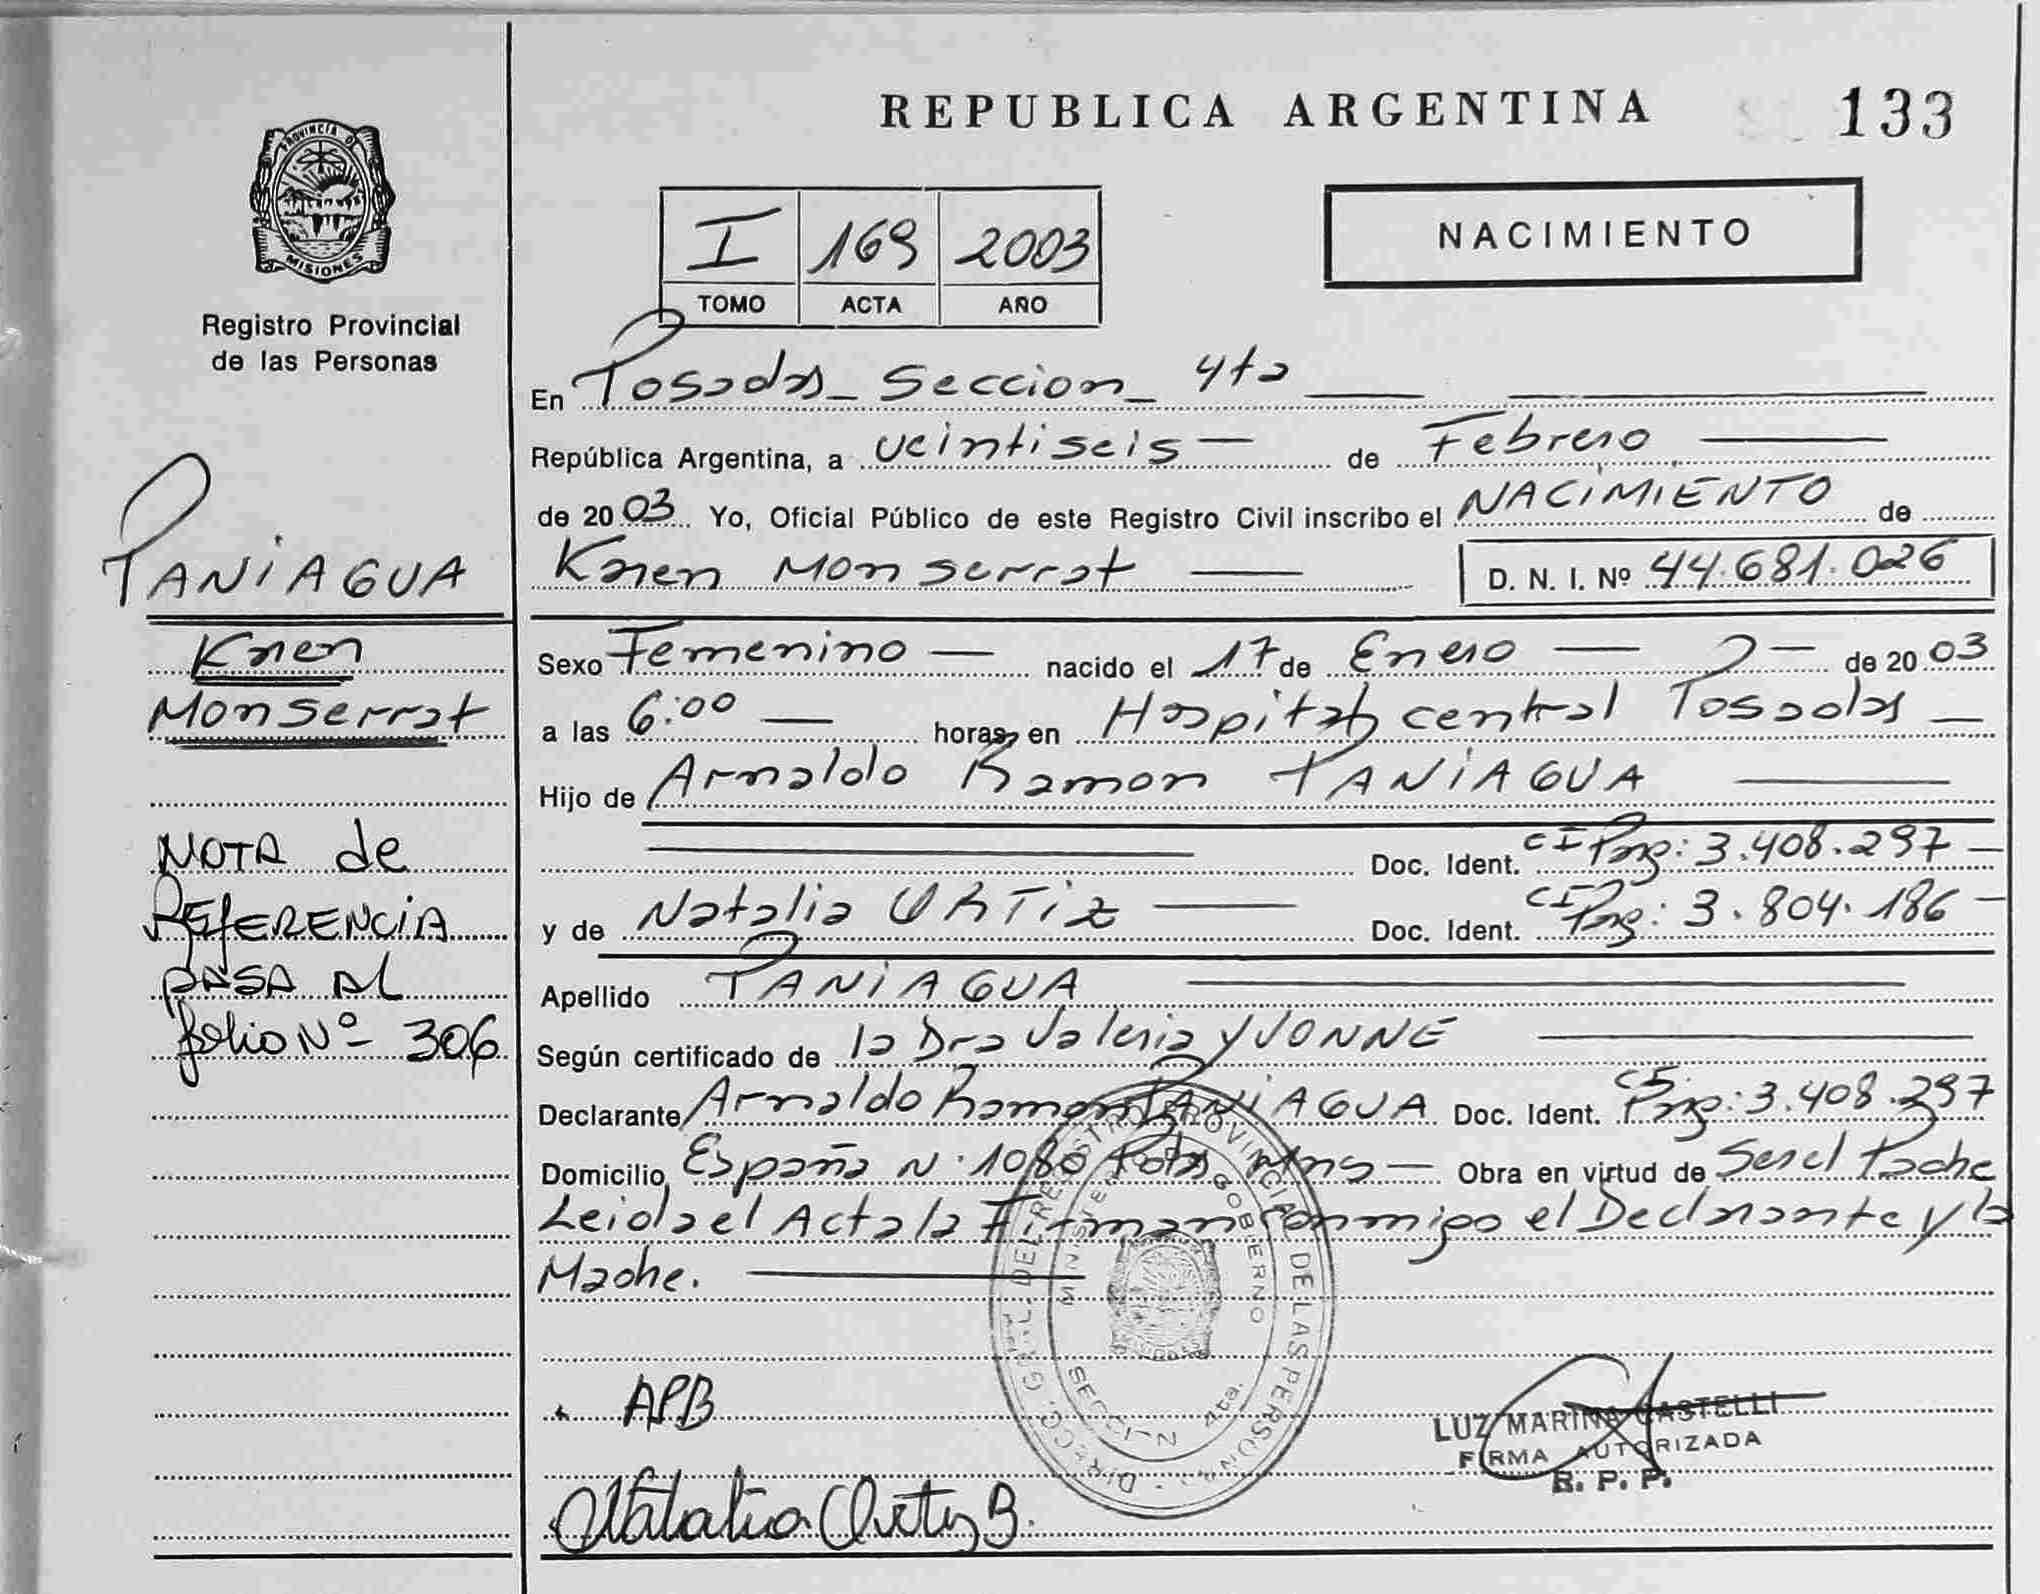 REPUBLICA ARGENTINA 133
PROVINCIA D
MISIONES
Registro Provincial
de las Personas
I 169 2003
TOMO ACTA AÑO
NACIMIENTO
En Posadas - Seccion - 4ta
República Argentina, a veintiseis de Febrero
de 20 03 Yo, Oficial Público de este Registro Civil inscribo el NACIMIENTO de
Karen Monserrat D. N. I. Nº 44.681.026
PANIAGUA
Karen
Monserrat
NOTA de
REFERENCIA
PASA AL
folio Nº 306
Sexo Femenino nacido el 17 de Enero de 20 03
a las 6:00 horas, en Hospital central Posadas
Hijo de Arnaldo Ramon PANIAGUA
Doc. Ident. CI Prg: 3.408.297
y de Natalia ORTIZ Doc. Ident. CI Prg: 3.804.186
Apellido PANIAGUA
Según certificado de la Dra Valeria YVONNE
Declarante Arnaldo Ramon PANIAGUA Doc. Ident. Prg: 3.408.297
Domicilio España N. 1080 Pdas Mns Obra en virtud de Ser el Padre
Leida el Acta la Firman conmigo el Declarante y la
Madre.
DIRECC. GRAL. DEL REGISTRO PROVINCIAL DE LAS PERSONAS
GOBIERNO
SECCION 4ta.
APB
LUZ MARINA CASTELLI
FIRMA AUTORIZADA
R. P. P.
Natalia Ortiz B.